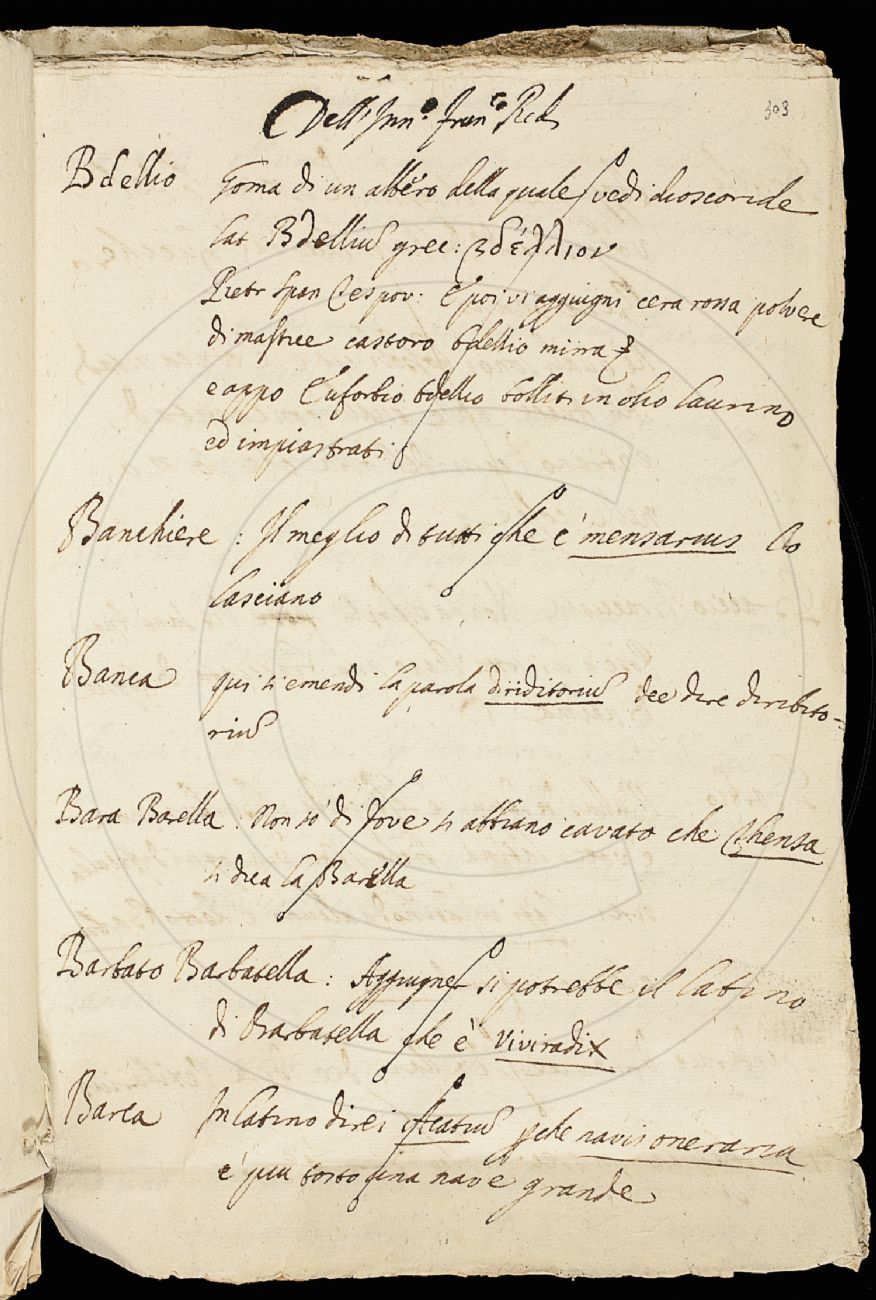 Dell'Inn.º Fran.co Redi
303
Bdellio Goma di un albero della quale vedi dioscoride
lat Bdelliũ grec: βδέλλιον
Pietr Span E poi vi aggiugni cera rossa polvere
di mastice castoro bdellio mirra
e appo L'uforbio bdellio bolliti in olio laurino
ed impiastrati
Banchiere : Il meglio di tutti che è mensarius lo
lasciano
Banca qui si emendi la parola diriditoriũ dee dire diribito=
riũ
Bara Barella : Non so' di dove si abbiano cavato che Thensa
si dica la Barella
Barbato Barbatella : Aggiugner si potrebbe il latino
di Barbatella che è Viviradix
Barca In latino direi pche navis oneraria
è piu tosto una nave grande